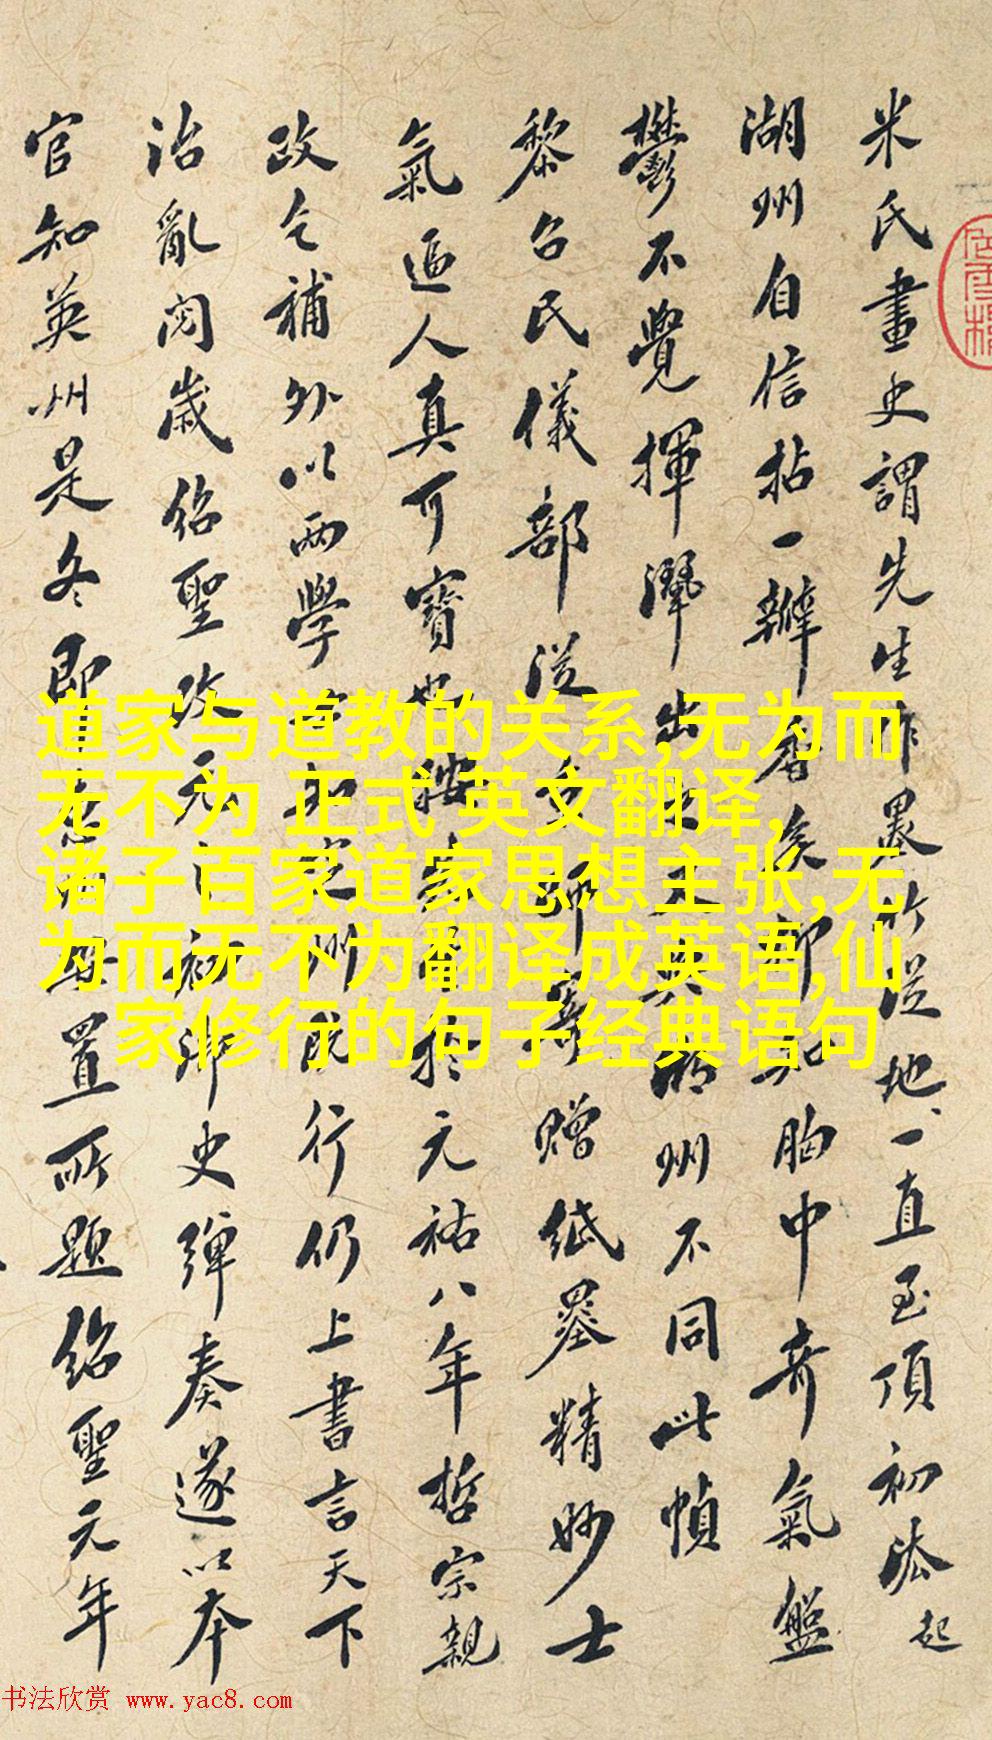 米氏畫史謂先生作墨竹從地一直至頂初法起
湖州自信拈一瓣香矣 胸中奇氣盤
鬱不覺揮灑出 州不同此幀
黎召民儀部從 贈紙墨精妙士
氣逼人真可寶也 元祐八年哲宗親
政乞補外以兩學士 定州既行仍上書言天下
治亂閱歲紹聖改元 御史彈奏遂以本
官知英州是冬即 置所題紹聖元年
道家与道教的关系,无为而
无不为 正式 英文翻译,
诸子百家道家思想主张,无
为而无不为翻译成英语,仙
家修行的句子经典语句
书法欣赏 www.yac8.com